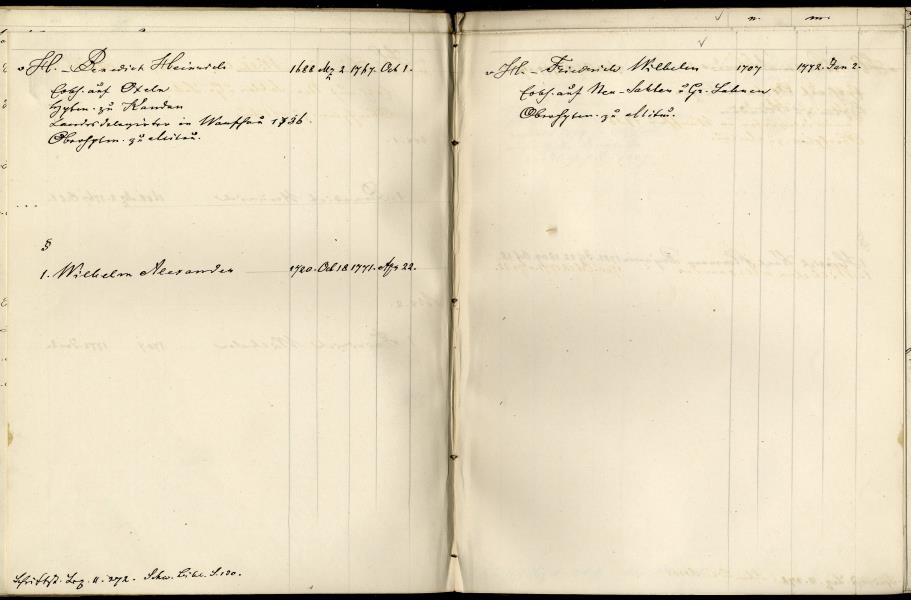 v. H. – Benedict Heinrich 1688 Mz 2. 1767. Oct 1.
Erbh. auf Oxeln
Hptm. zu Kandau
Landesdelegirter in Warschau 1736.
Oberhptm. zu Mitau.
§
1. Wilhelm Alexander 1720. Oct 18. 1771. Apr 22.
Schriftst. Lex. II. 272. Schw. Bibl. S. 120.
n. m.
v. H. – Friedrich Wilhelm 1707 1772. Jan 2.
Erbh. auf Neu-Sahten u Gr. Lahnen
Oberhptm. zu Mitau.